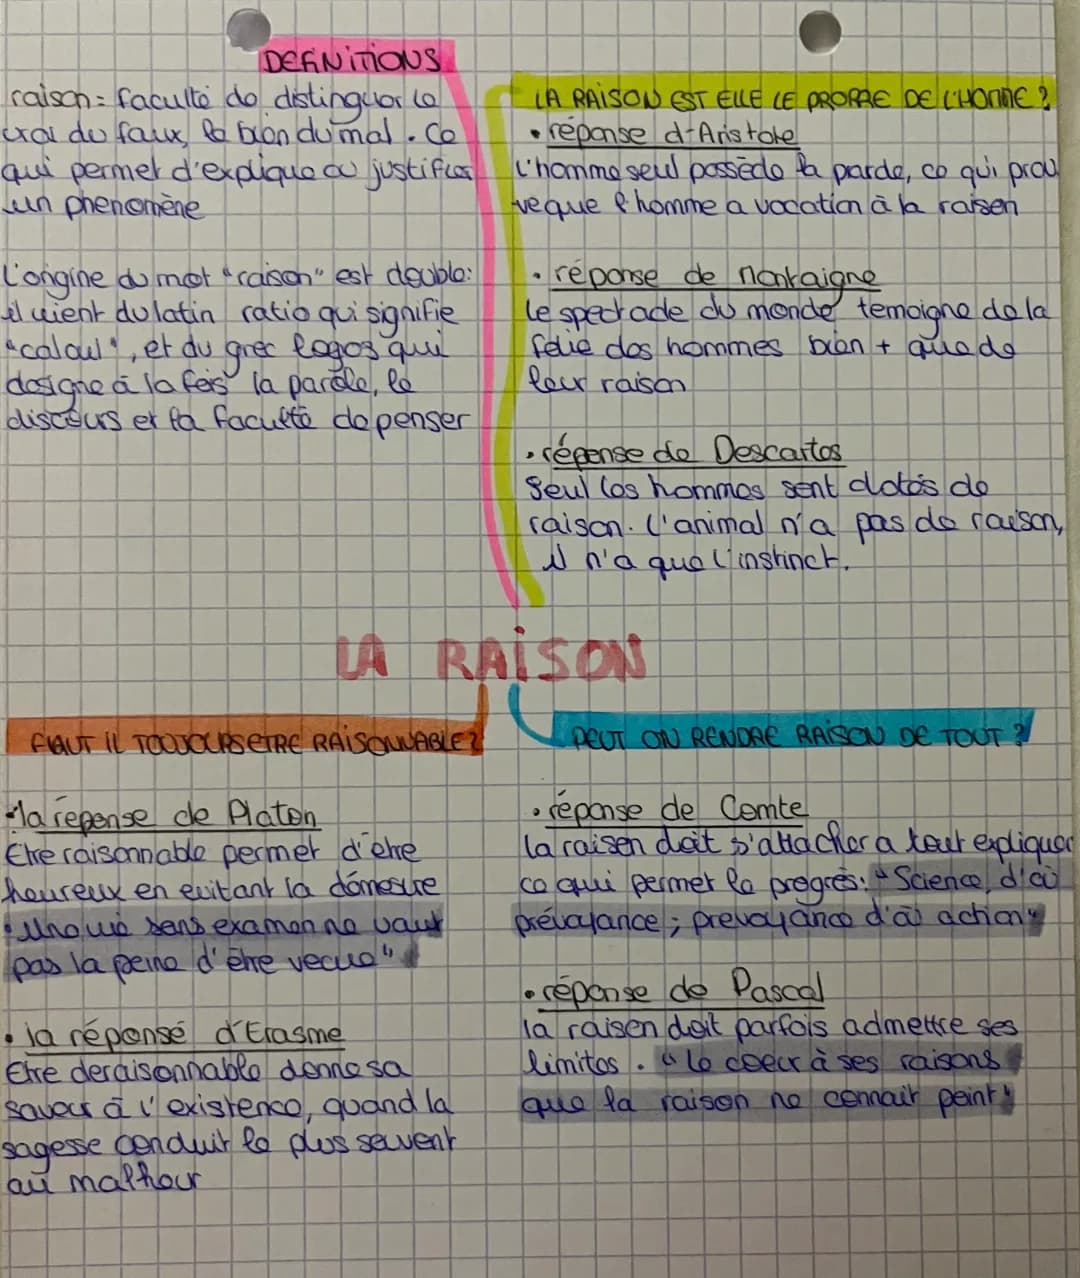 DEFINITIONS
raison = faculté de distinguer le
vrai du faux, le bien du mal. Ce
qui permet d'explique ou justifier
un phenomène
L'origine du mot "raison" est double:
il vient du latin ratio qui signifie
"calcul", et du grec logos qui
designe à la fois la parole, le
discours et la faculté de penser
LA RAISON EST ELLE LE PROPRE DE L'HOMME ?
• réponse d'Aristote
L'homme seul possède la parole, ce qui prou
ve que l'homme a vocation à la raison
• réponse de Montaigne
Le spectacle du monde temoigne de la
folie des hommes bien + que de
leur raison
• réponse de Descartes
Seul les hommes sont dotés de
raison. L'animal n'a pas de raison,
il n'a que l'instinct.
LA RAISON
FAUT IL TOUJOURS ETRE RAISONNABLE ?
• la réponse de Platon
Etre raisonnable permet d'être
heureux en evitant la démesure
"Une vie sans examen ne vaut
pas la peine d'être vecue"
• la réponse d'Erasme
Etre deraisonnable donne sa
saveur à l'existence, quand la
sagesse conduit le plus souvent
au malheur
PEUT ON RENDRE RAISON DE TOUT ?
• réponse de Comte
La raison doit s'attacher a tout expliquer
ce qui permet le progrès: "Science, d'où
prévoyance ; prevoyance d'où action"
• réponse de Pascal
la raison doit parfois admettre ses
limites. "Le coeur à ses raisons
que la raison ne connait point"